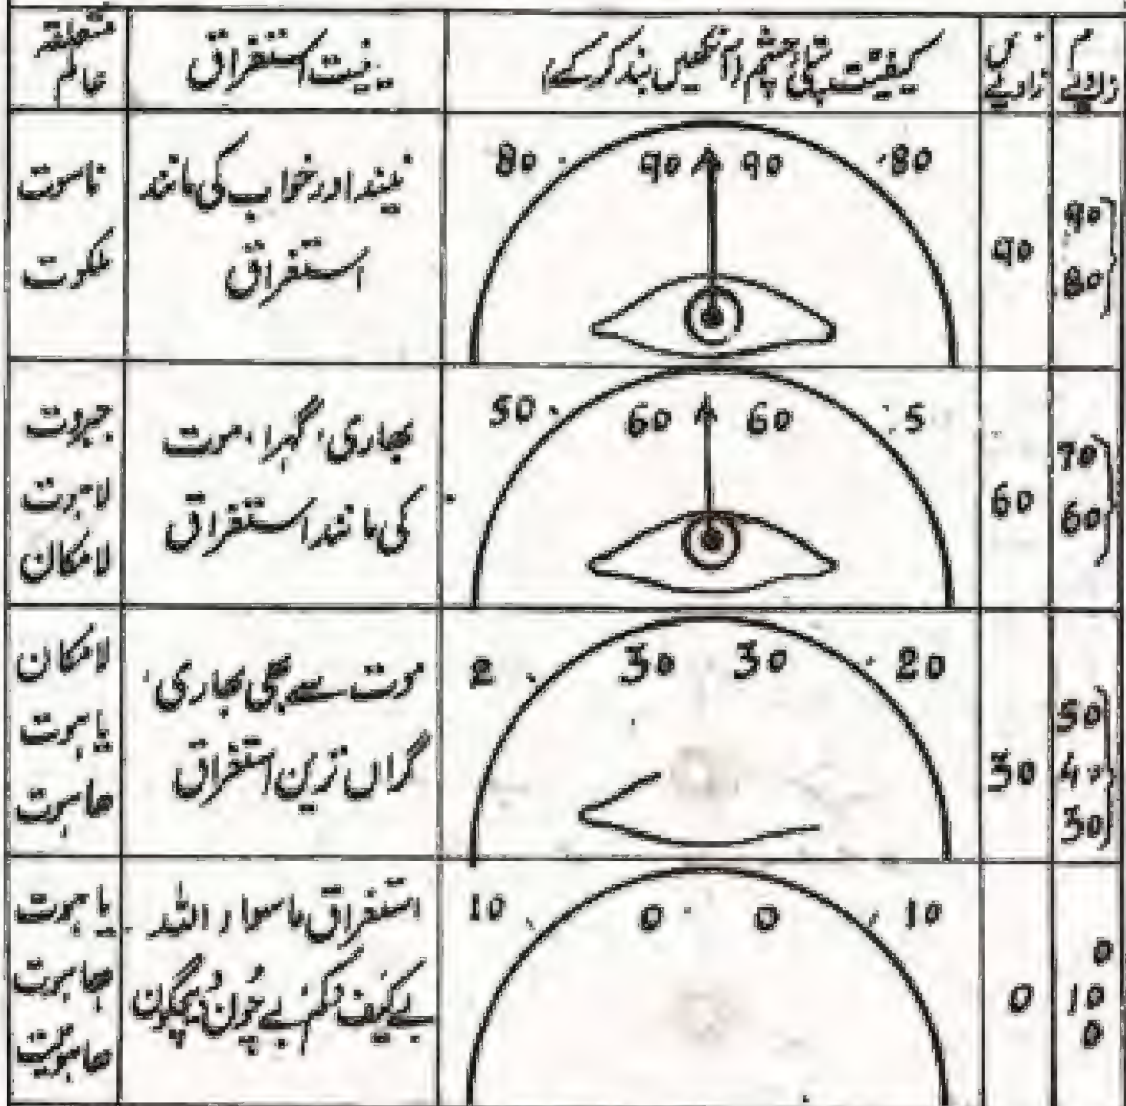 زاویے
زاویے
کیفیّت پتلی چشم (آنکھیں بند کر کے)
ہیئت استغراق
متعلقہ
عالم
90
80
90
80 90 90 80
نیند اور خواب کی مانند
استغراق
ناسوت
ملکوت
70
60
60
50 60 60 5
بھاری، گہرا، موت
کی مانند استغراق
جبروت
لاہوت
لامکان
50
40
30
30
2 30 30 20
موت سے بھی بھاری،
گراں ترین استغراق
لامکان
یاہوت
ھاہوت
0
10
0
0
10 0 0 10
استغراق ماسوا اللہ
بے کیف و کم بے چُون و بیچگون
یاہوت
ھاہوت
ھاہویت